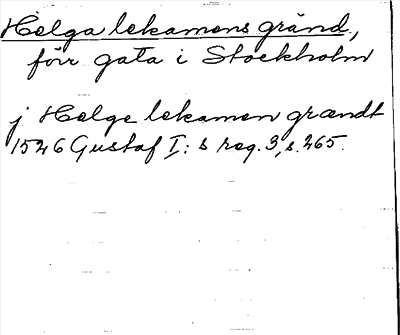 Helga lekamens gränd,
förr gata i Stockholm
j Helge lekamen grandt
1526 Gustaf I: s reg. 3, s. 265.